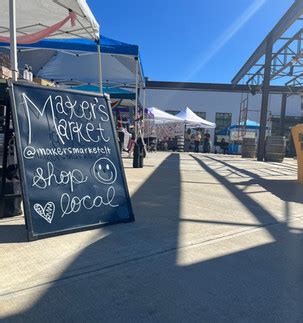 Maker's
Market
@makersmarketclt
shop
local